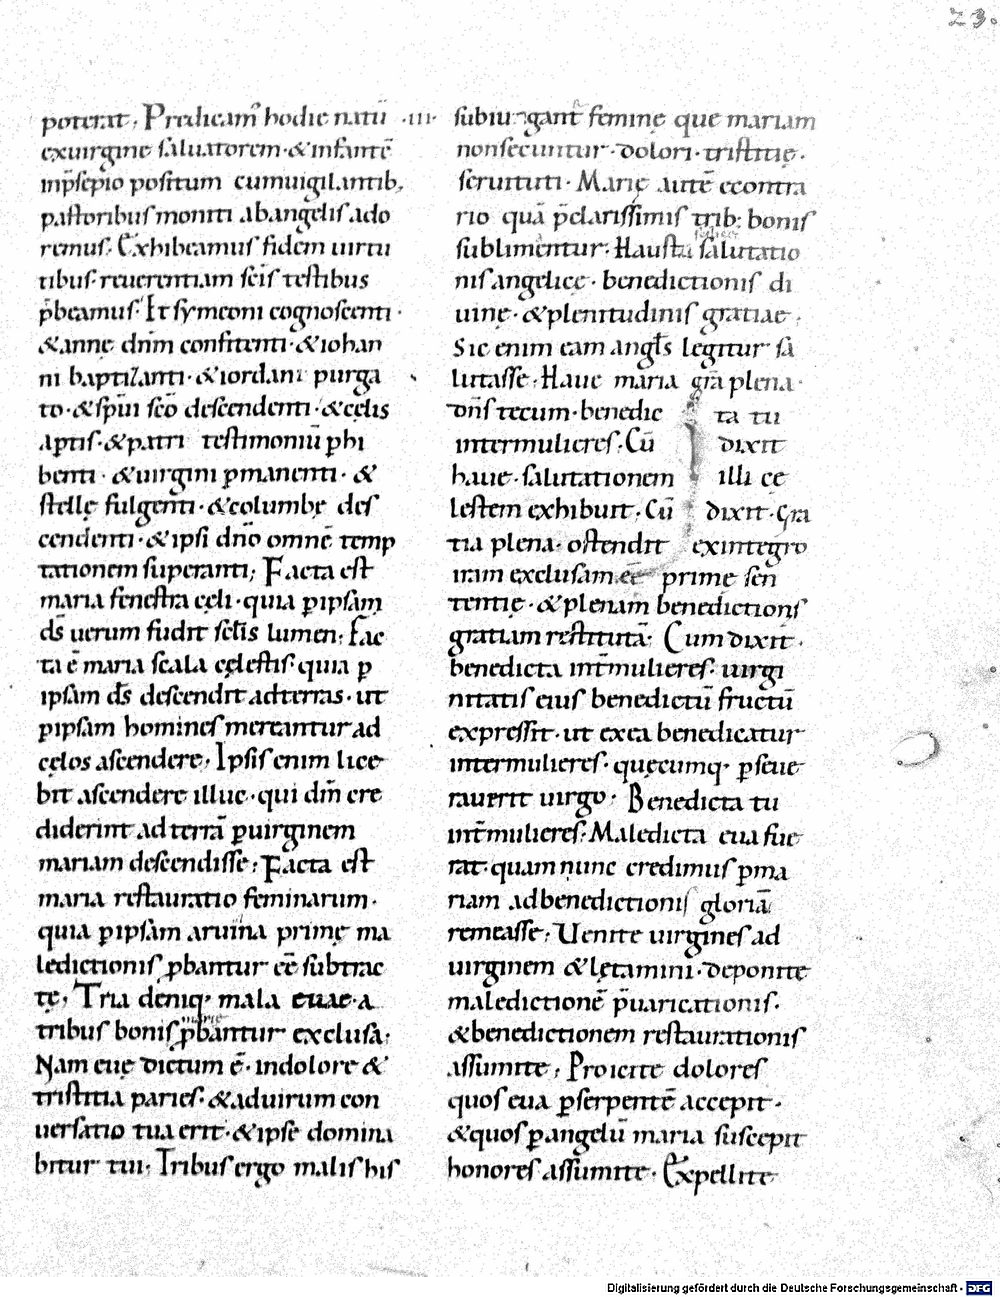 23.
poterat. Predicam᷒ hodie natū ·III·
exuirgine saluatorem·&infantē
inp̄sepio positum cumuigilantib;
pastoribus moniti abangelis ado
remus. Exhibeamus fidem uirtu
tibus·reuerentiam sc̄is testibus
p̄beamus. Et symeoni cognoscenti·
&annę dn̄m confitenti·&iohan
ni baptizanti·&iordani purga
to·&sp̄ui sc̄o descendenti·&cęlis
aptis·&patri testimoniū phi
benti·&uirgini ꝑmanenti·&
stellę fulgenti·&columbę des
cendenti·&ipsi dn̄o omnē temp
tationem superanti; Facta est
maria fenestra cęli·quia ꝑipsam
ds̄ uerum fudit sc̄lis lumen. Fac
ta ē maria scala cęlestis·quia ꝑ
ipsam ds̄ descendit adterras·ut
ꝑipsam homines mereantur ad
cęlos ascendere. Ipsis enim lice
bit ascendere illuc·qui dm̄ cre
diderint ad terrā ꝑuirginem
mariam descendisse; Facta est
maria restauratio feminarum·
quia ꝑipsam aruina primę ma
ledictionis ꝓbantur eē subtrac
tę. Tria deniq· mala euae·a
marię
tribus bonis ꝓbantur exclusa;
Nam euę dictum ē·indolore &
tristitia paries·&aduirum con
uersatio tua erit·&ipse domina
bitur tui. Tribus ergo malis his
subiu gant feminę que mariam
nonsecuntur·dolori·tristitię·
seruituti·Marię autē econtra
rio quā p̄clarissimis trib; bonis
sublimentur·Haustu salutatio
nis angelicę·benedictionis di
uinę·&plenitudinis gratiae.
Sic enim eam angls̄ legitur sa
lutasse. Haue maria gr̄a plena·
dn̄s tecum·benedic ta tu
intermulieres·Cū dixit
haue·salutationem illi cę
lestem exhibuit·Cū dixit·Gra
tia plena·ostendit exintegro
iram exclusam eē primę sen
tentię·&plenam benedictionis
gratiam restitutā. Cum dixit·
benedicta int̄mulieres·uirgi
nitatis eius benedictū fructū
expressit·ut exea benedicatur
intermulieres·quęcumq· ꝑseue
rauerit uirgo. Benedicta tu
int̄mulieres. Maledicta eua fue
rat·quam nunc credimus ꝑma
riam adbenedictionis gloriā
remeasse. Uenite uirgines ad
uirginem &lętamini·deponite
maledictionē p̄uaricationis·
&benedictionem restaurationis
assumite. Proicite dolores
quos eua ꝑserpentē accepit·
&quos ꝑangelū maria suscepit
honores assumite·Expellite
Digitalisierung gefördert durch die Deutsche Forschungsgemeinschaft - DFG